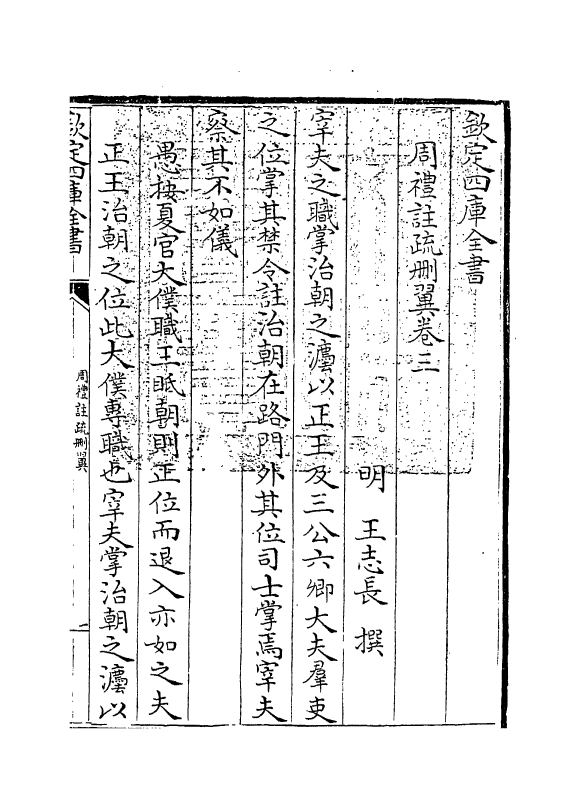 欽定四庫全書
周禮註疏刪翼卷三
明 王志長 撰
宰夫之職掌治朝之灋以正王及三公六卿大夫羣吏
之位掌其禁令註治朝在路門外其位司士掌焉宰夫
察其不如儀
愚按夏官大僕職王眡朝則正位而退入亦如之夫
正王治朝之位此大僕專職也宰夫掌治朝之灋以
欽定四庫全書
周禮註疏刪翼
一